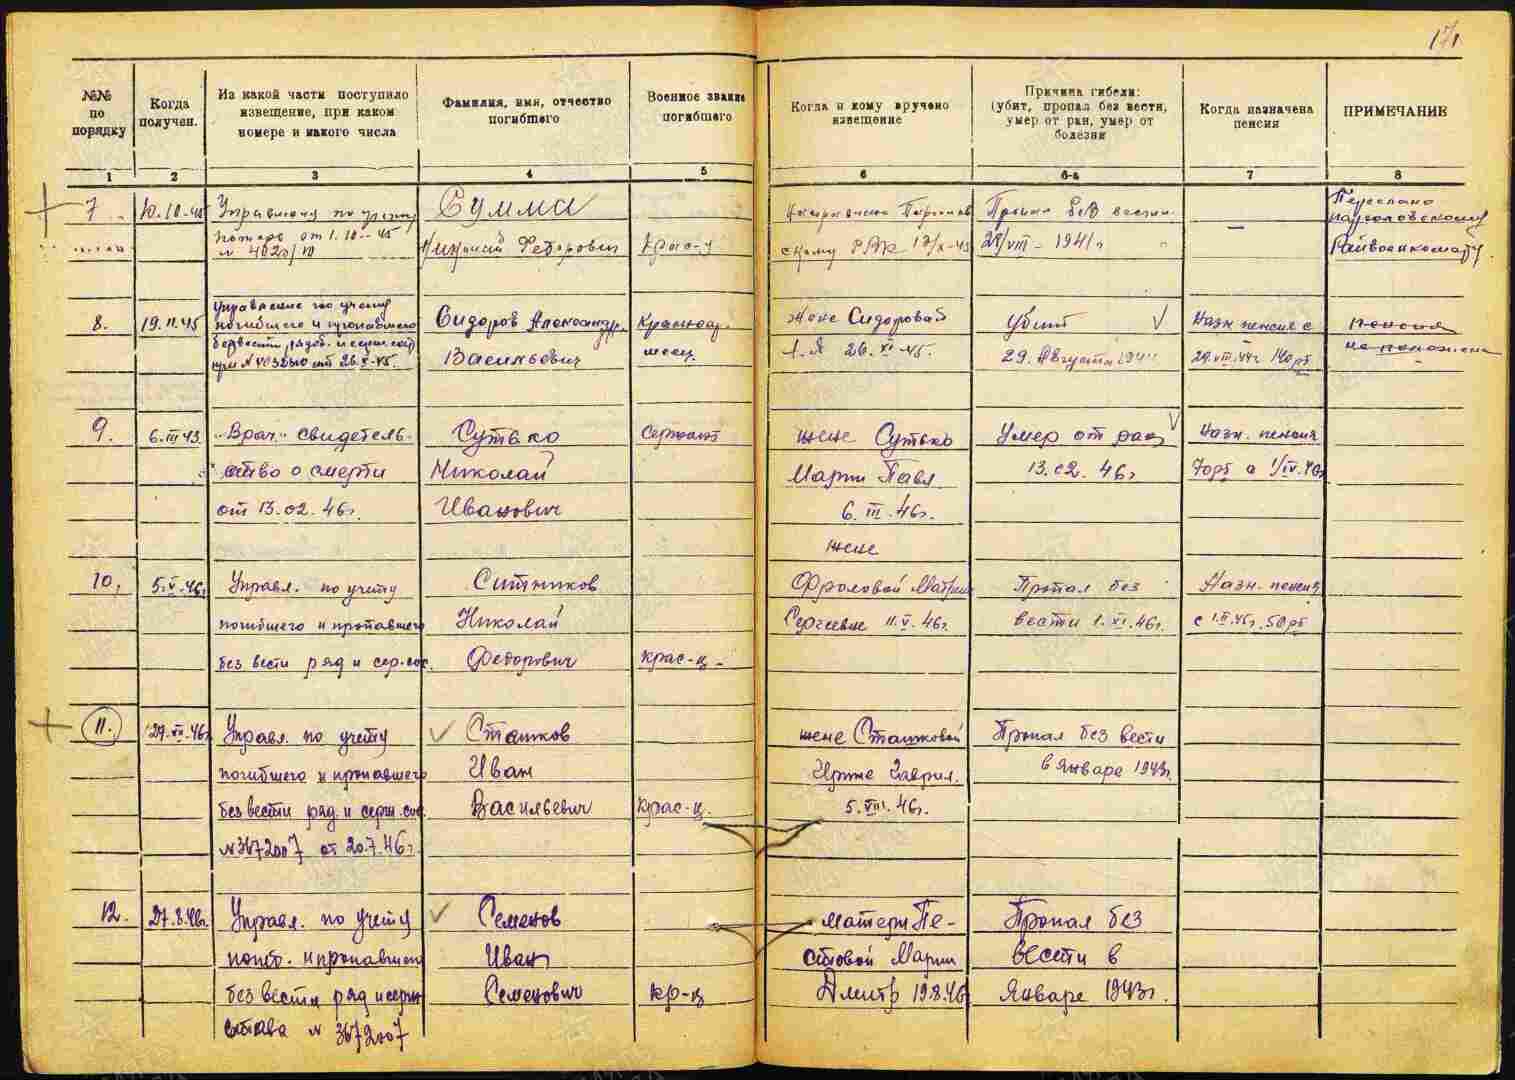 171
№№ по порядку
Когда получен.
Из какой части поступило извещение, при каком номере и какого числа
Фамилия, имя, отчество погибшего
Военное звание погибшего
Когда и кому вручено извещение
Причина гибели: (убит, пропал без вести, умер от ран, умер от болезни
Когда назначена пенсия
ПРИМЕЧАНИЕ
1 2 3 4 5 6 6-а 7 8
7 10.10-45 Управления по учету Сумма Пропал без вести Переслано
потерь от 1.10-45 Федорович Крас-ц скому РВК 17/X-45 29/VIII-1941г Райвоенкомату
8. 19.11.45 Управление по учету
погибшего и пропавшего Сидоров Александр. Красноар- Жене Сидоровой Убит Назн пенсия с пенсия
без вести рядов. и сержсост Васильевич меец А.Я 26.XI-45. 29. Августа 1944 29.VIII.44г 140рб не положена
при № от 26.X-45.
9. 6.III 43. "Врач" свидетель- Сутько Сержант жене Сутько Умер от ран Назн. пенсия
ство о смерти Николай Марии Павл. 13.02.46г 70рб с 1/IV.46г
от 13.02.46г. Иванович 6.III.46г.
жене
10. 5.V.46г Управл. по учету Ситников Фроловой Матрене Пропал без Назн. пенсия
погибшего и пропавшего Николай Сергеевне 11.V.46г. вести 1.XI.46г. с 1.II.45г. 50рб
без вести ряд и сер.сос. Федорович крас-ц-
11. 29.VII.46г Управл. по учету Сташков жене Сташковой Пропал без вести
погибшего и пропавшего Иван Ирине Гаврил. в Январе 1943г.
без вести ряд. и серж.сос. Васильевич крас-ц. 5.VIII.46г.
№3672007 от 20.7.46г.
12. 27.8.46г. Управл. по учету Семенов матери Пе- Пропал без
погиб. и пропавшего Иван стовой Марии вести в
без вести ряд и серж Семенович кр-ц Дмитр 19.8.46 Январе 1943г.
состава № 3672007